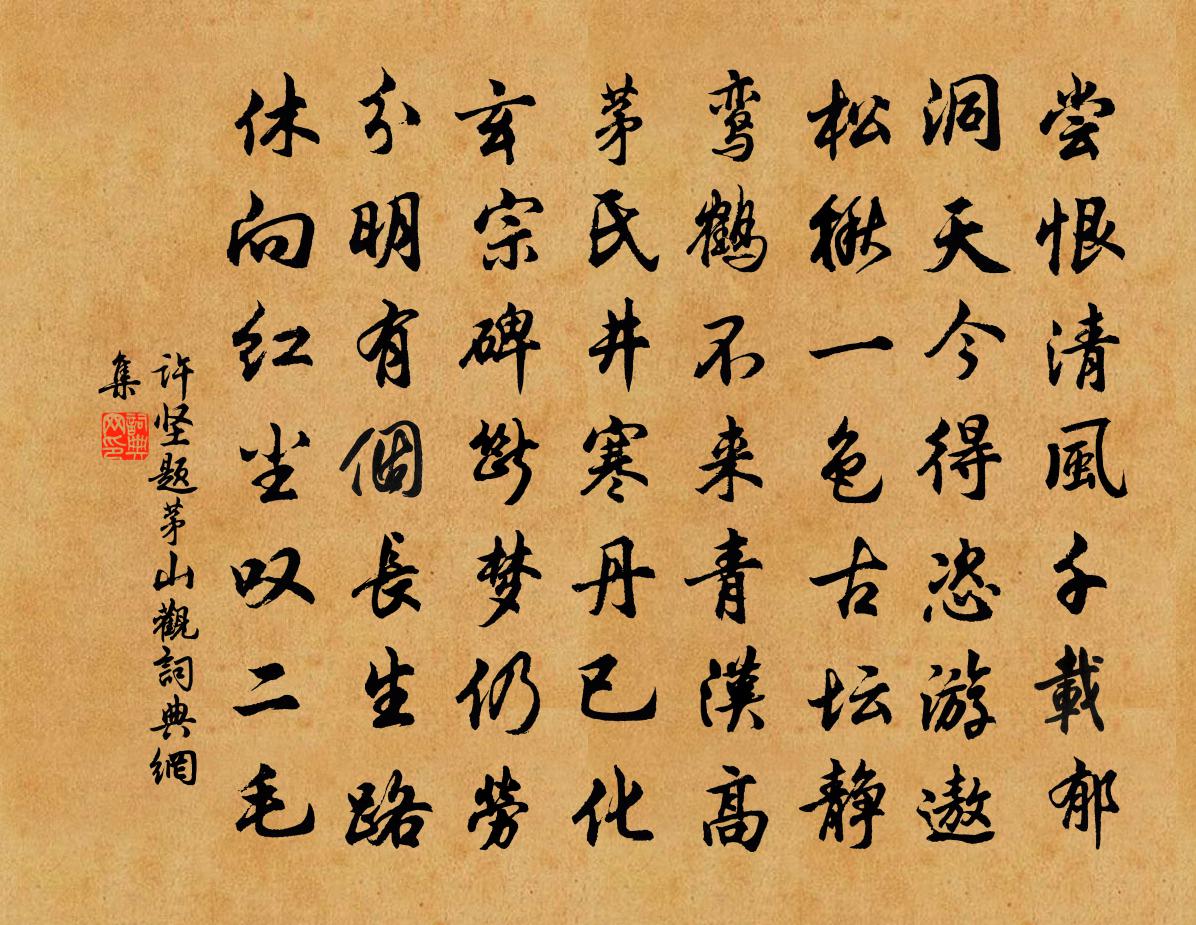 尝恨清風千載郁
洞天今得恣游遨
松楸一色古坛静
鸾鶴不来青漢高
茅氏井寒丹已化
玄宗碑断梦仍勞
分明有個長生路
休向红尘叹二毛
许坚题茅山觀詞典網
集
詞典网印